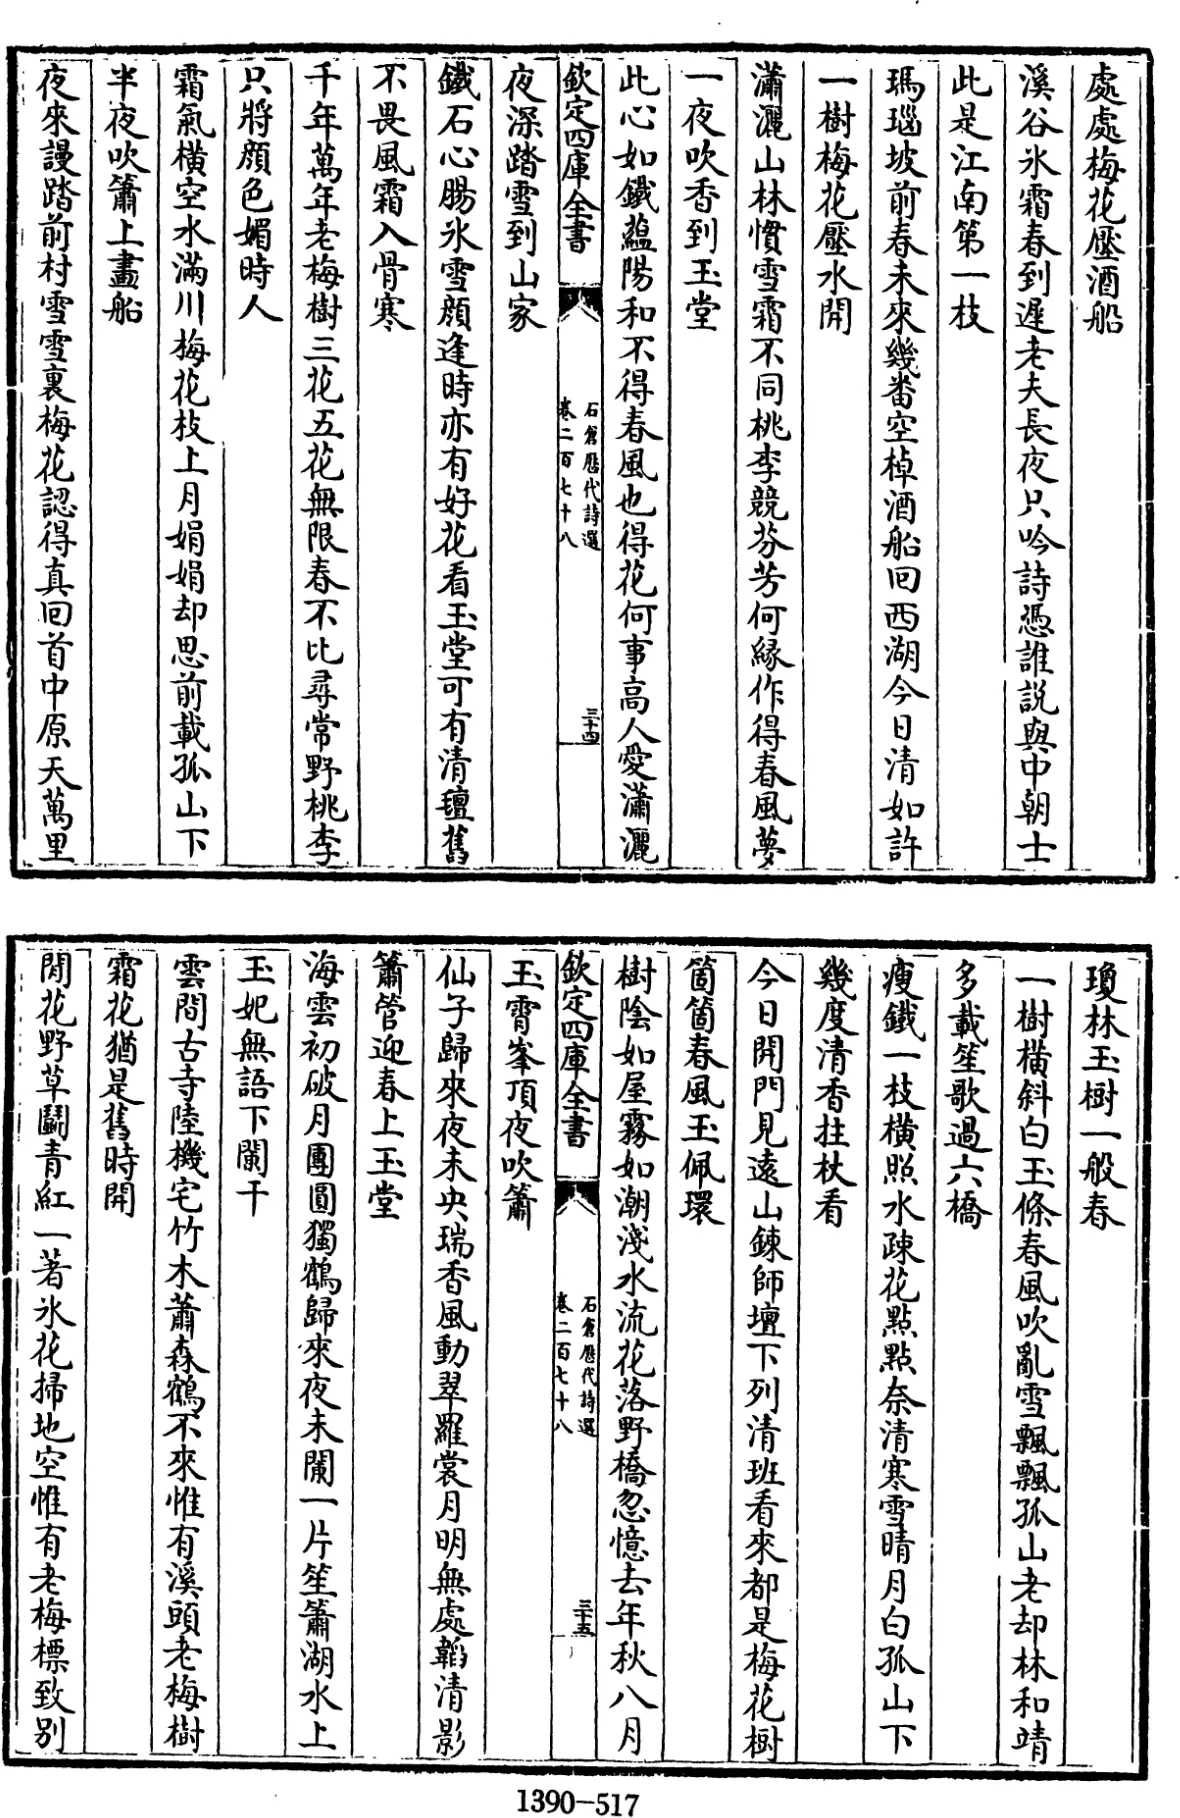 處處梅花壓酒船
溪谷氷霜春到遲老夫長夜只吟詩憑誰説與中朝士
此是江南第一枝
瑪瑙坡前春未來幾番空棹酒船回西湖今日清如許
一樹梅花壓水開
瀟灑山林慣雪霜不同桃李競芬芳何縁作得春風夢
一夜吹香到玉堂
此心如鐵藴陽和不得春風也得花何事高人愛瀟灑
欽定四庫全書
石倉歷代詩選
卷二百七十八
三十四
夜深踏雪到山家
鐵石心腸氷雪顔逢時亦有好花看玉堂可有清氊舊
不畏風霜入骨寒
千年萬年老梅樹三花五花無限春不比尋常野桃李
只將顔色媚時人
霜氣橫空水滿川梅花枝上月娟娟却思前載孤山下
半夜吹簫上畫船
夜來謾踏前村雪雪裏梅花認得真回首中原天萬里
瓊林玉樹一般春
一樹橫斜白玉條春風吹亂雪飄飄孤山老却林和靖
多載笙歌過六橋
瘦鐵一枝橫照水疎花點點奈清寒雪晴月白孤山下
幾度清香拄杖看
今日開門見遠山鍊師壇下列清班看來都是梅花樹
箇箇春風玉佩環
樹陰如屋霧如潮淺水流花落野橋忽憶去年秋八月
欽定四庫全書
石倉歷代詩選
卷二百七十八
三十五
玉霄峯頂夜吹簫
仙子歸來夜未央瑞香風動翠羅裳月明無處韜清影
簫管迎春上玉堂
海雲初破月團圓獨鶴歸來夜未闌一片笙簫湖水上
玉妃無語下闌干
雲間古寺陸機宅竹木蕭森鶴不來惟有溪頭老梅樹
霜花猶是舊時開
閒花野草鬭青紅一著氷花掃地空惟有老梅標致别
1390-517